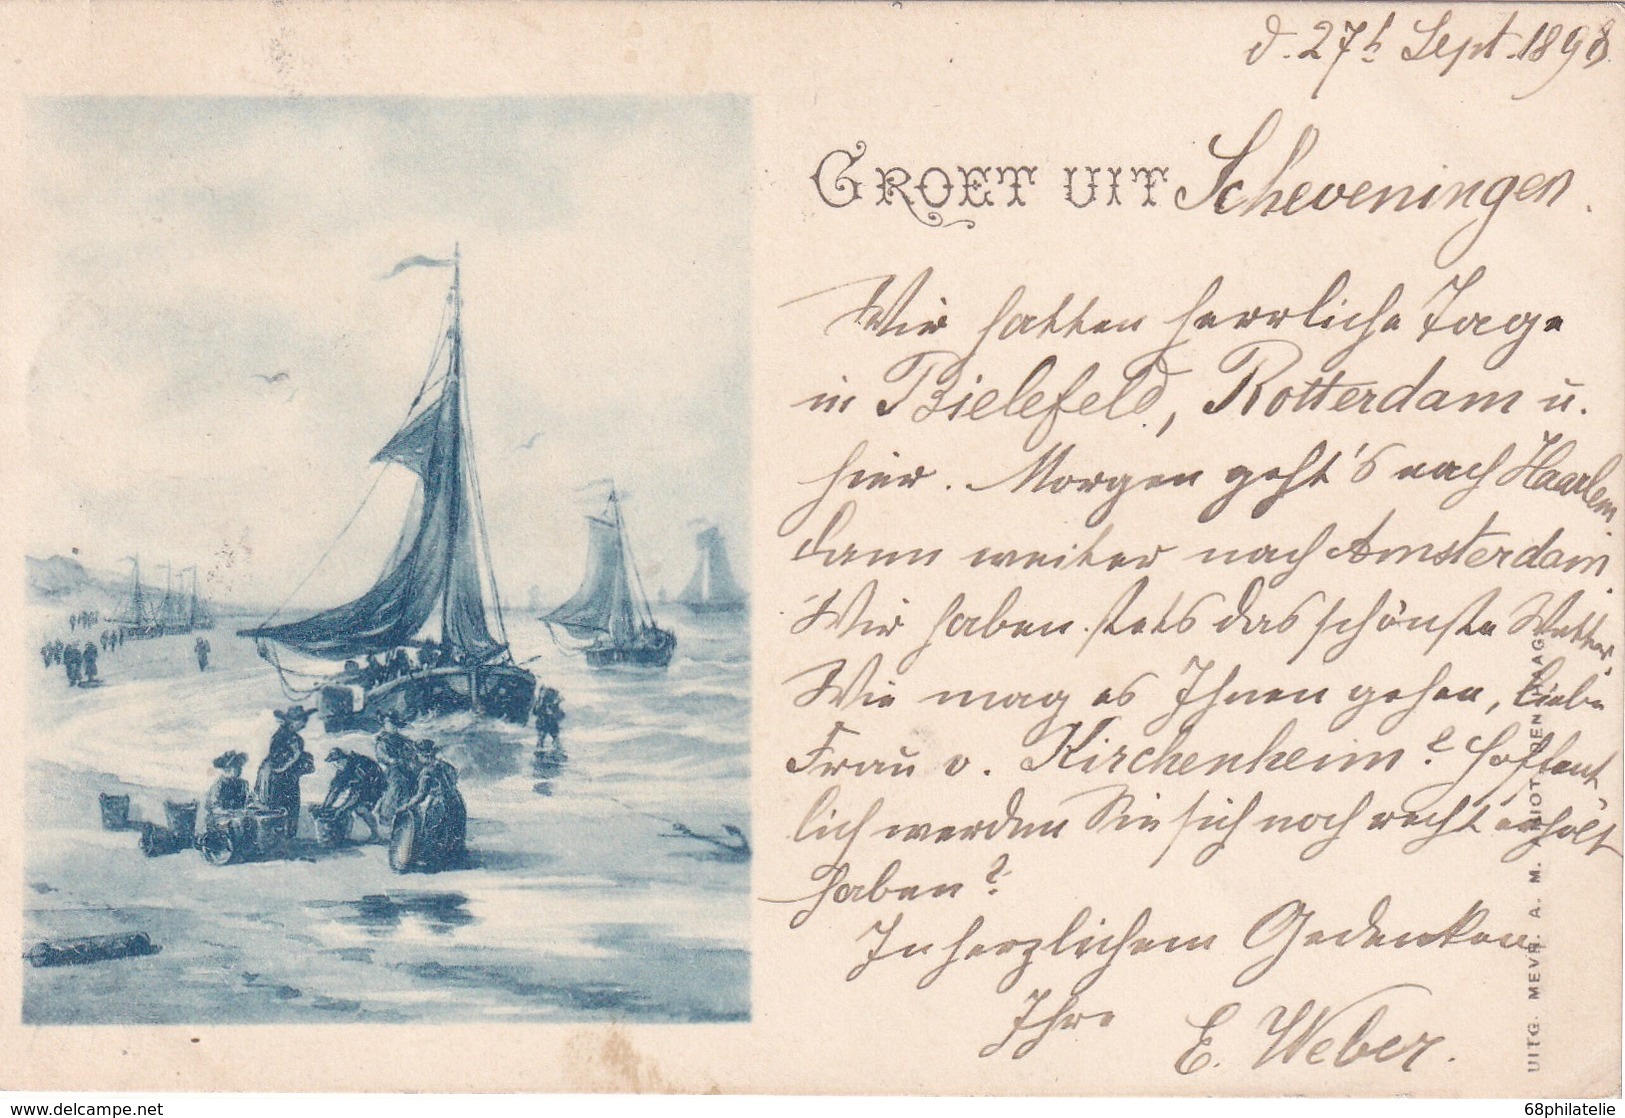 d. 27t Sept. 1898.
GROET UIT Scheveningen.
Wir hatten herrliche Tage
in Bielefeld, Rotterdam u.
hier. Morgen geht's nach Haarlem
dann weiter nach Amsterdam.
Wir haben stets das schönste Wetter.
Wie mag es Ihnen gehen, liebe
Frau v. Kirchenheim? Hoffent
lich werden Sie sich noch recht erholt
haben?
In herzlichem Gedenken
Ihre E. Weber.
UITG. MEVR. A. M. DEN HAAG
delcampe.net
68philatelie